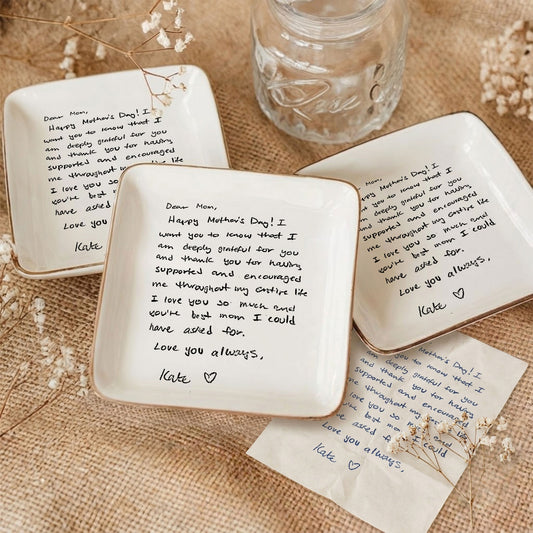 Dear Mom,
Happy Mother's Day! I
want you to know that I
am deeply grateful for you
and thank you for having
supported and encouraged
me throughout my entire life
I love you so much and
you're best mom I could
have asked for.
Love you always,
Kate ♡
Dear Mom,
Happy Mother's Day! I
want you to know that I
am deeply grateful for you
and thank you for having
supported and encouraged
me throughout my
I love you so
you're best
have asked
Love you
Kate
Mom,
Mother's Day! I
to know that I
deeply grateful for you
thank you for having
supported and encouraged
me throughout my entire life
I love you so much and
you're best mom I could
have asked for.
Love you always,
Kate ♡
want you to know that I
am deeply grateful for you
and thank you for having
supported and encouraged
me throughout my entire
I love you so much
you're best mom I could
have asked for.
Love you always,
Kate ♡